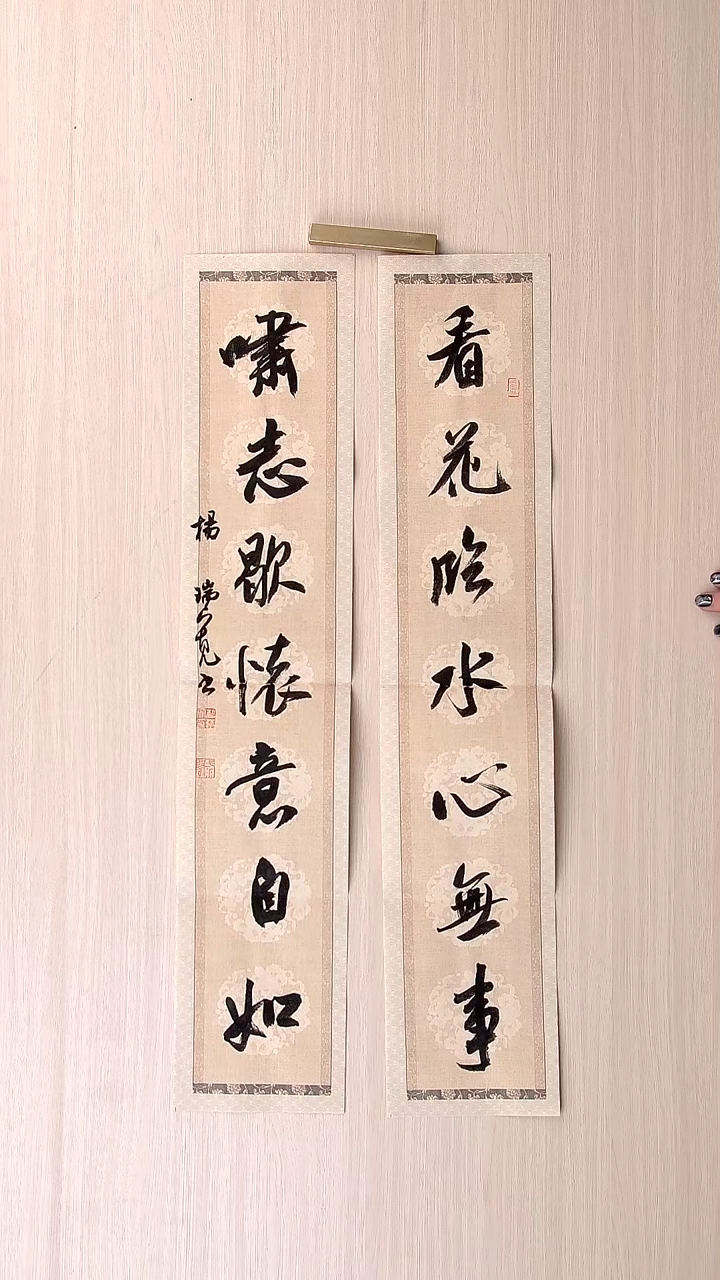 看花臨水心無事
嘯志歌懷意自如
楊瑞